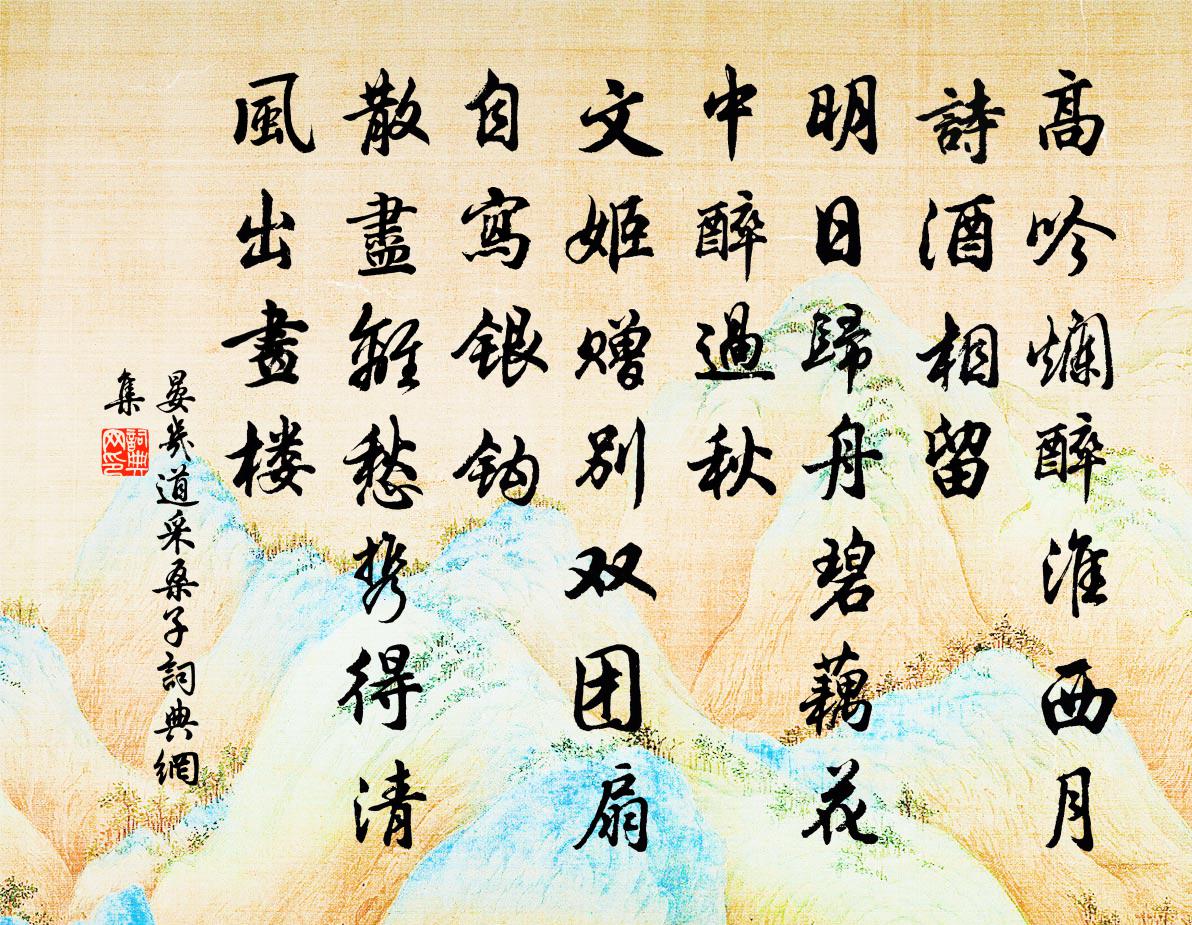 高吟爛醉淮西月
詩酒相留
明日歸舟碧藕花
中醉過秋
文姬贈別双团扇
自寫銀鈎
散盡離愁携得清
風出畫楼
晏幾道采桑子詞典網
集
詞典网印